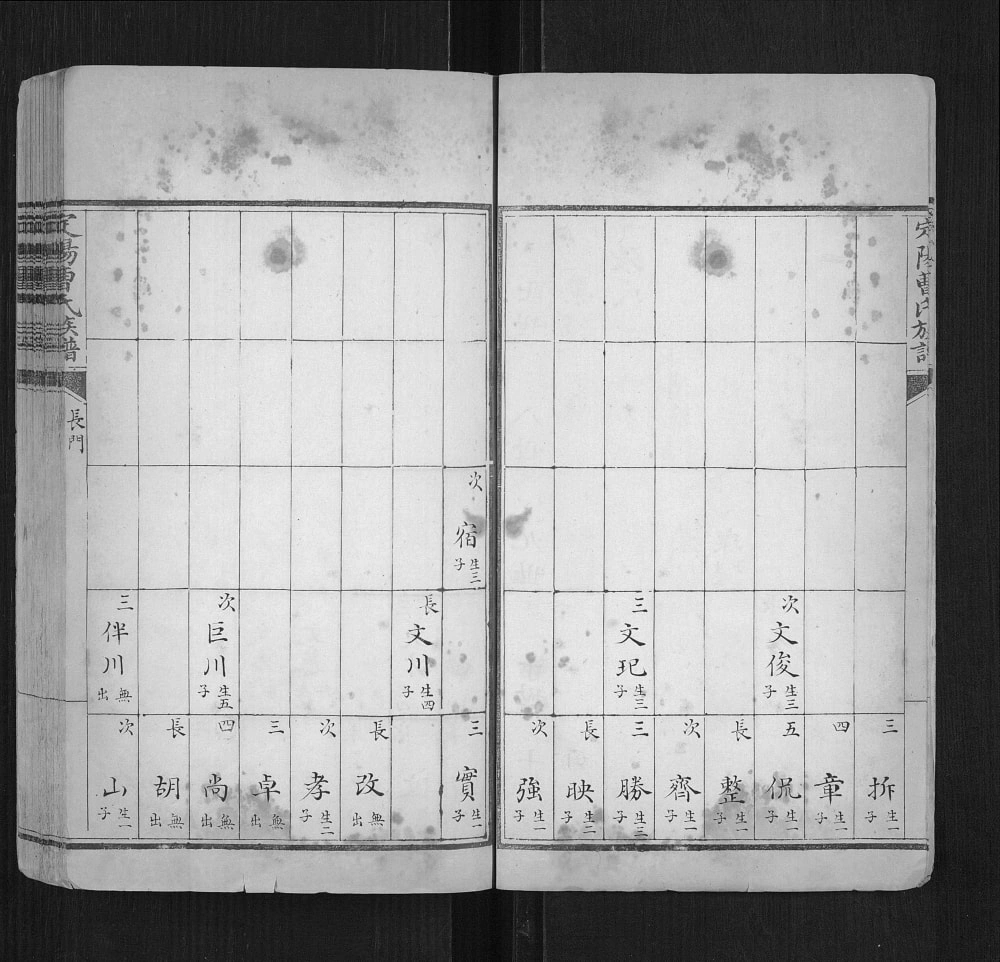 定陽曹氏族譜
三 拆 生一子
四 章 生一子
次 文俊 生三子
五 侃 生一子
長 整 生一子
次 齊 生一子
三 文玘 生三子
三 勝 生三子
長 映 生二子
次 強 生一子
次 宿 生三子
三 實 生一子
長 文川 生四子
長 改 無出
次 孝 生二子
三 卓 無出
次 巨川 生五子
四 尚 無出
長 胡 無出
三 伴川 無出
次 山 生一子
定陽曹氏族譜
長門